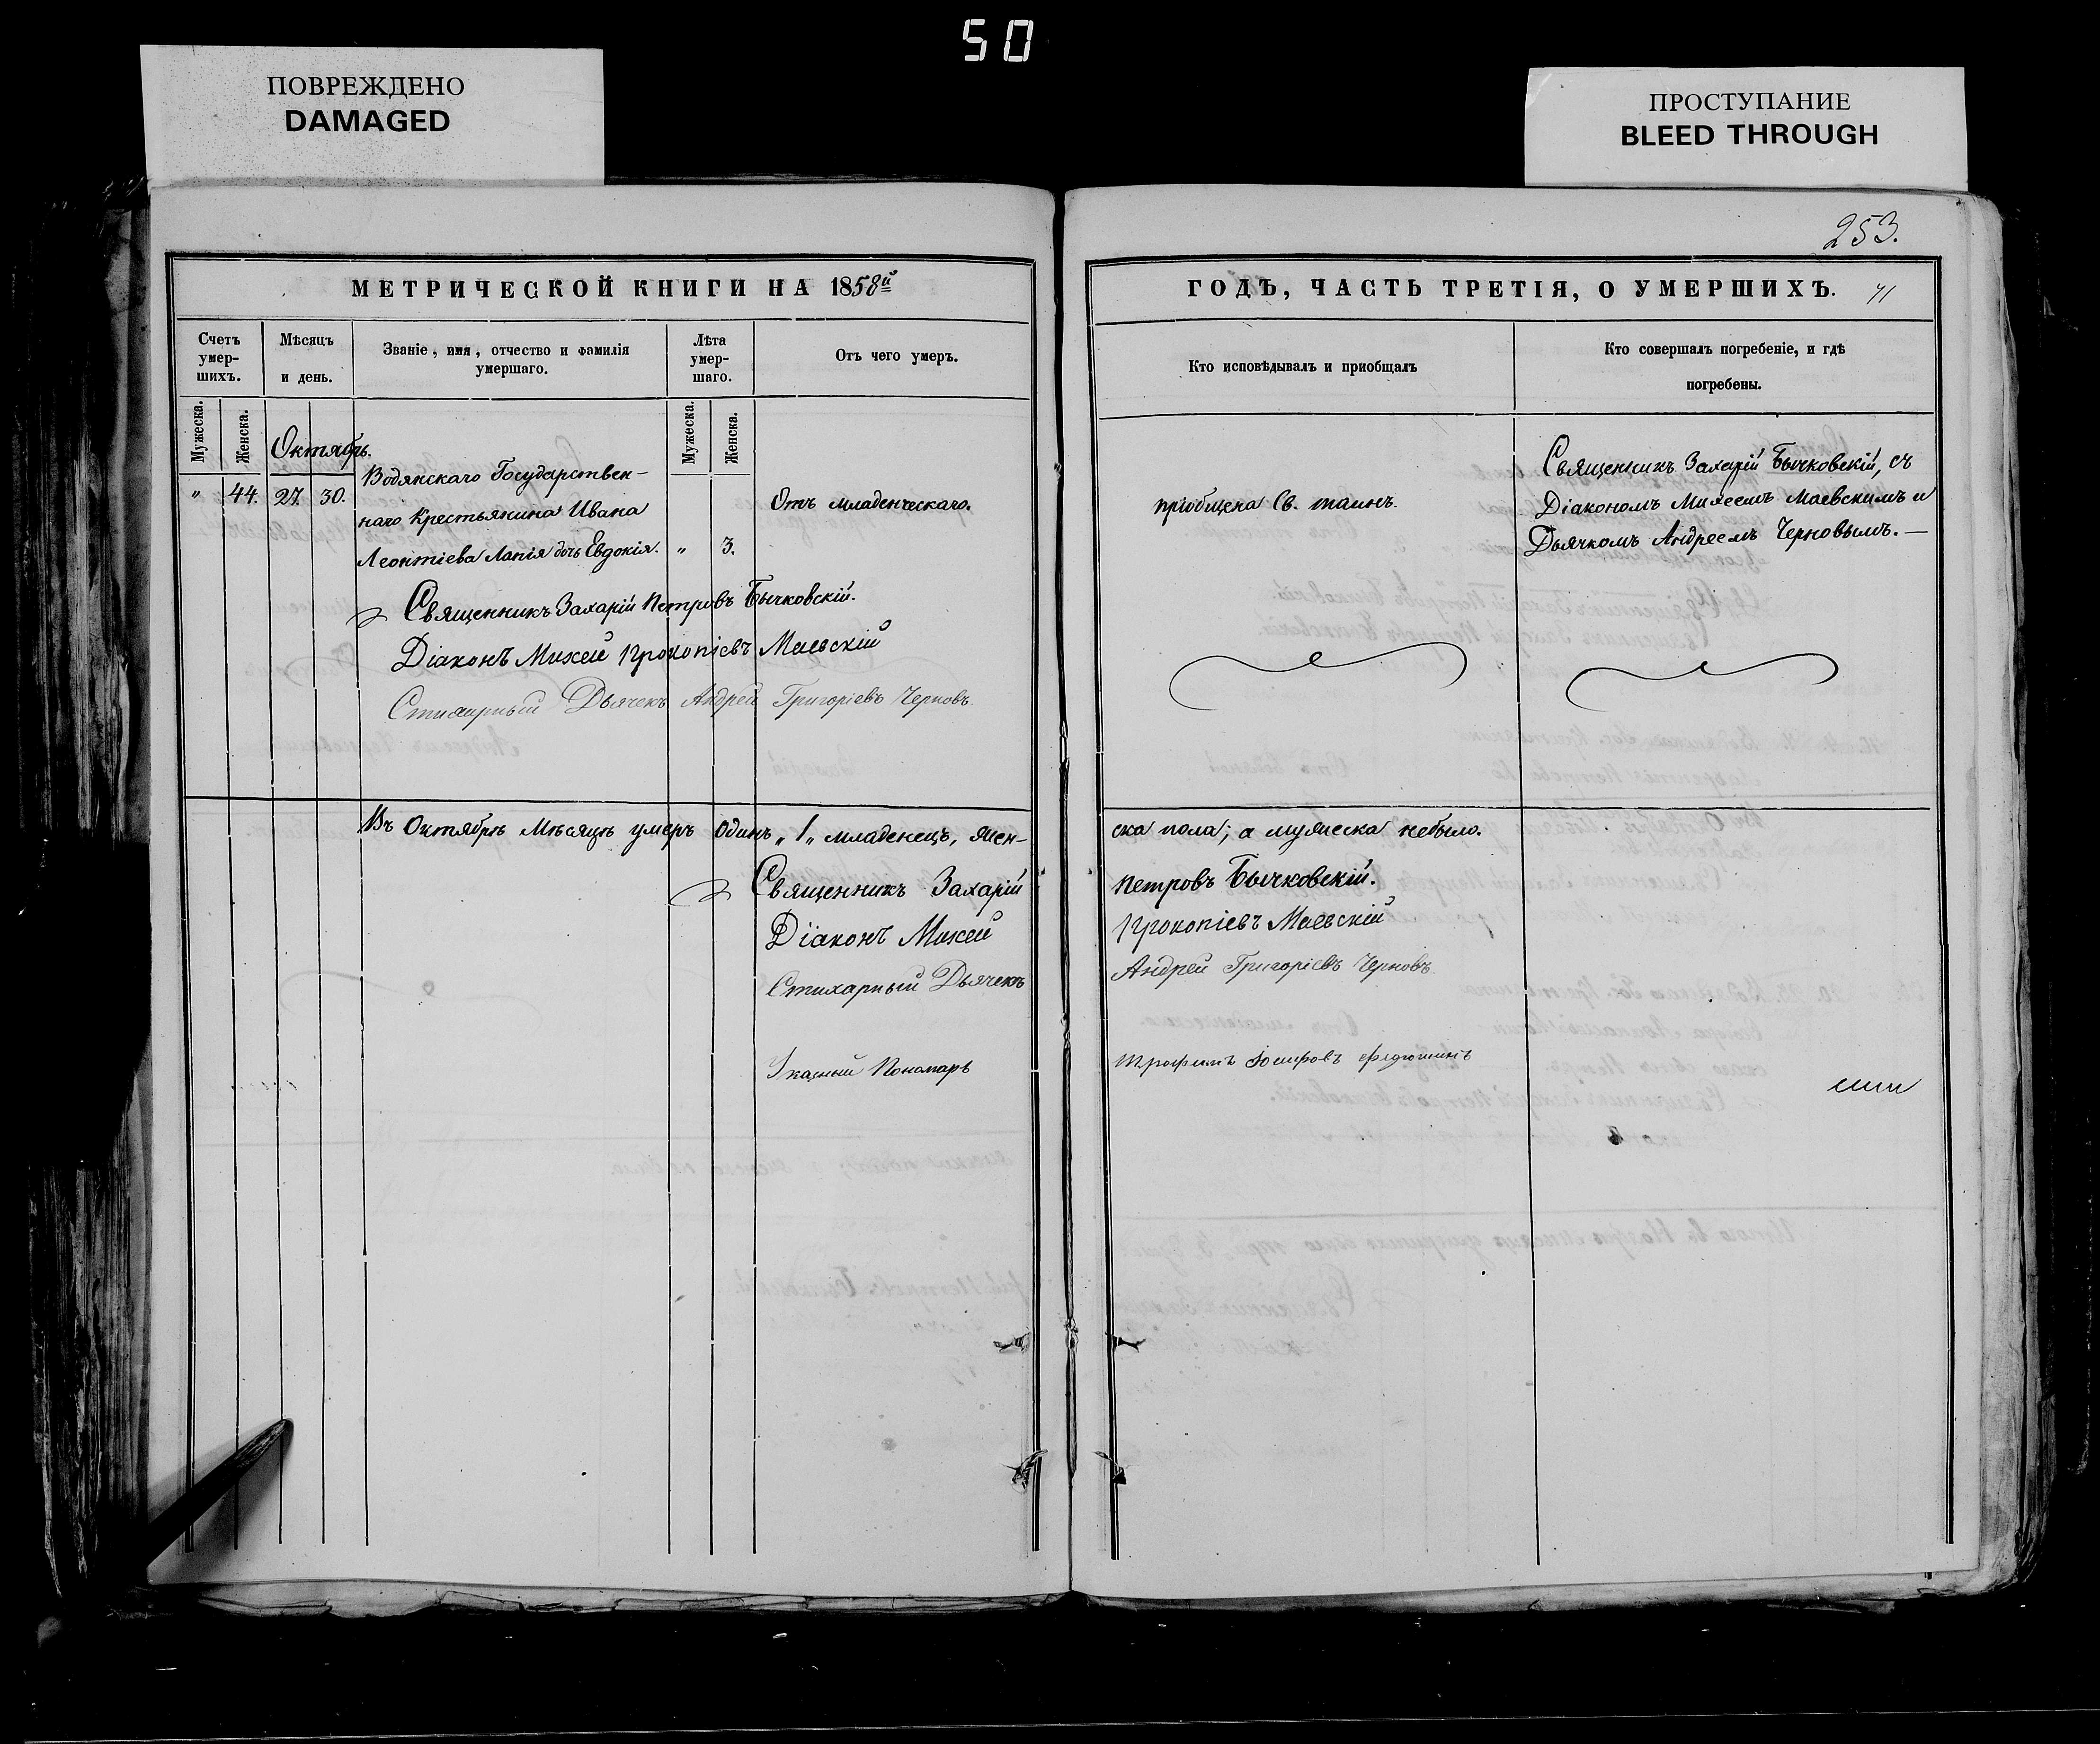 50
ПОВРЕЖДЕНО
DAMAGED
ПРОСТУПАНИЕ
BLEED THROUGH
253.
МЕТРИЧЕСКОЙ КНИГИ НА 1858й
Счетъ умер-шихъ.
Мѣсяцъ и день.
Званіе, имя, отчество и фамилія умершаго.
Лѣта умер-шаго.
Отъ чего умеръ.
Мужеска.
Женска.
Мужеска.
Женска.
Октябрь.
Водянскаго Государствен-
" 44. 27. 30.
наго Крестьянина Ивана
Отъ младенческаго.
Леонтіева Лапія дочь Евдокія. " 3.
Священникъ Захарій Петровъ Бычковскій.
Діаконъ Михей Прокопіевъ Маевскій
Стихарный Дьячекъ Андрей Григоріевъ Черновъ.
Въ Октябрѣ Мѣсяцѣ умеръ одинъ „1„ младенецъ, жен-
Священникъ Захарій
Діаконъ Михей
Стихарный Дьячекъ
Указный Пономарь
ГОДЪ, ЧАСТЬ ТРЕТІЯ, О УМЕРШИХЪ.
Кто исповѣдывалъ и пріобщалъ
Кто совершалъ погребеніе, и гдѣ погребены.
пріобщена Св. таинъ.
Священникъ Захарій Бычковскій, съ
Діакономъ Михеемъ Маевскимъ и
Дьячкомъ Андреемъ Черновымъ.—
ска пола; а мужеска небыло.
Петровъ Бычковскій.
Прокопіевъ Маевскій
Андрей Григоріевъ Черновъ.
Трофимъ Іосифовъ